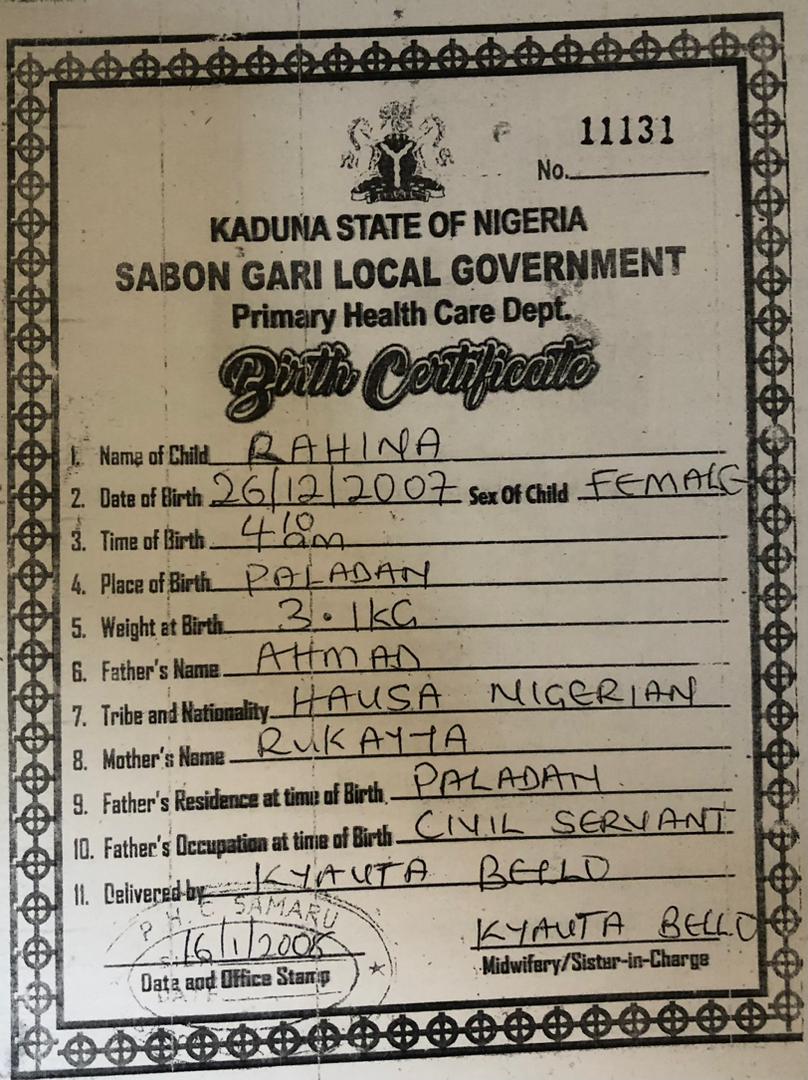 11131
No.
KADUNA STATE OF NIGERIA
SABON GARI LOCAL GOVERNMENT
Primary Health Care Dept.
Birth Certificate
1. Name of Child RAHINA
2. Date of Birth 26/12/2007 Sex Of Child FEMALE
3. Time of Birth 4 10 am
4. Place of Birth PALADAN
5. Weight at Birth 3.1KG
6. Father's Name AHMAD
7. Tribe and Nationality HAUSA NIGERIAN
8. Mother's Name RUKAYYA
9. Father's Residence at time of Birth PALADAN
10. Father's Occupation at time of Birth CIVIL SERVANT
11. Delivered by KYAUTA BELLO
P.H.C SAMARU
16/1/2008 KYAUTA BELLO
Data and Office Stamp Midwifery/Sister-in-Charge